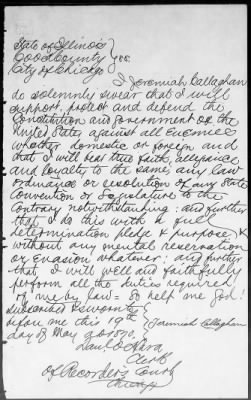 State of Illinois
Cook County } ss.
City of Chicago
I Jeremiah Callaghan
do solemnly swear that I will
support, protect and defend the
Constitution and Government of the
United States against all Enemies
whether domestic or foreign and
that I will bear true faith, allegiance
and loyalty to the same, any law
ordinance or resolution of any State
Convention or Legislature to the
contrary notwithstanding: and further
that I do this with a full
determination pledge & purpose, &
without any mental reservation
or evasion whatever: and further
that I will well and faithfully
perform all the duties required
of me by law = So help me God!
Subscribed & sworn to
before me this 19th } Jeremiah Callaghan
day of May 1870.
Danl O'Hara
Clerk
of Recorders Court
Chicago